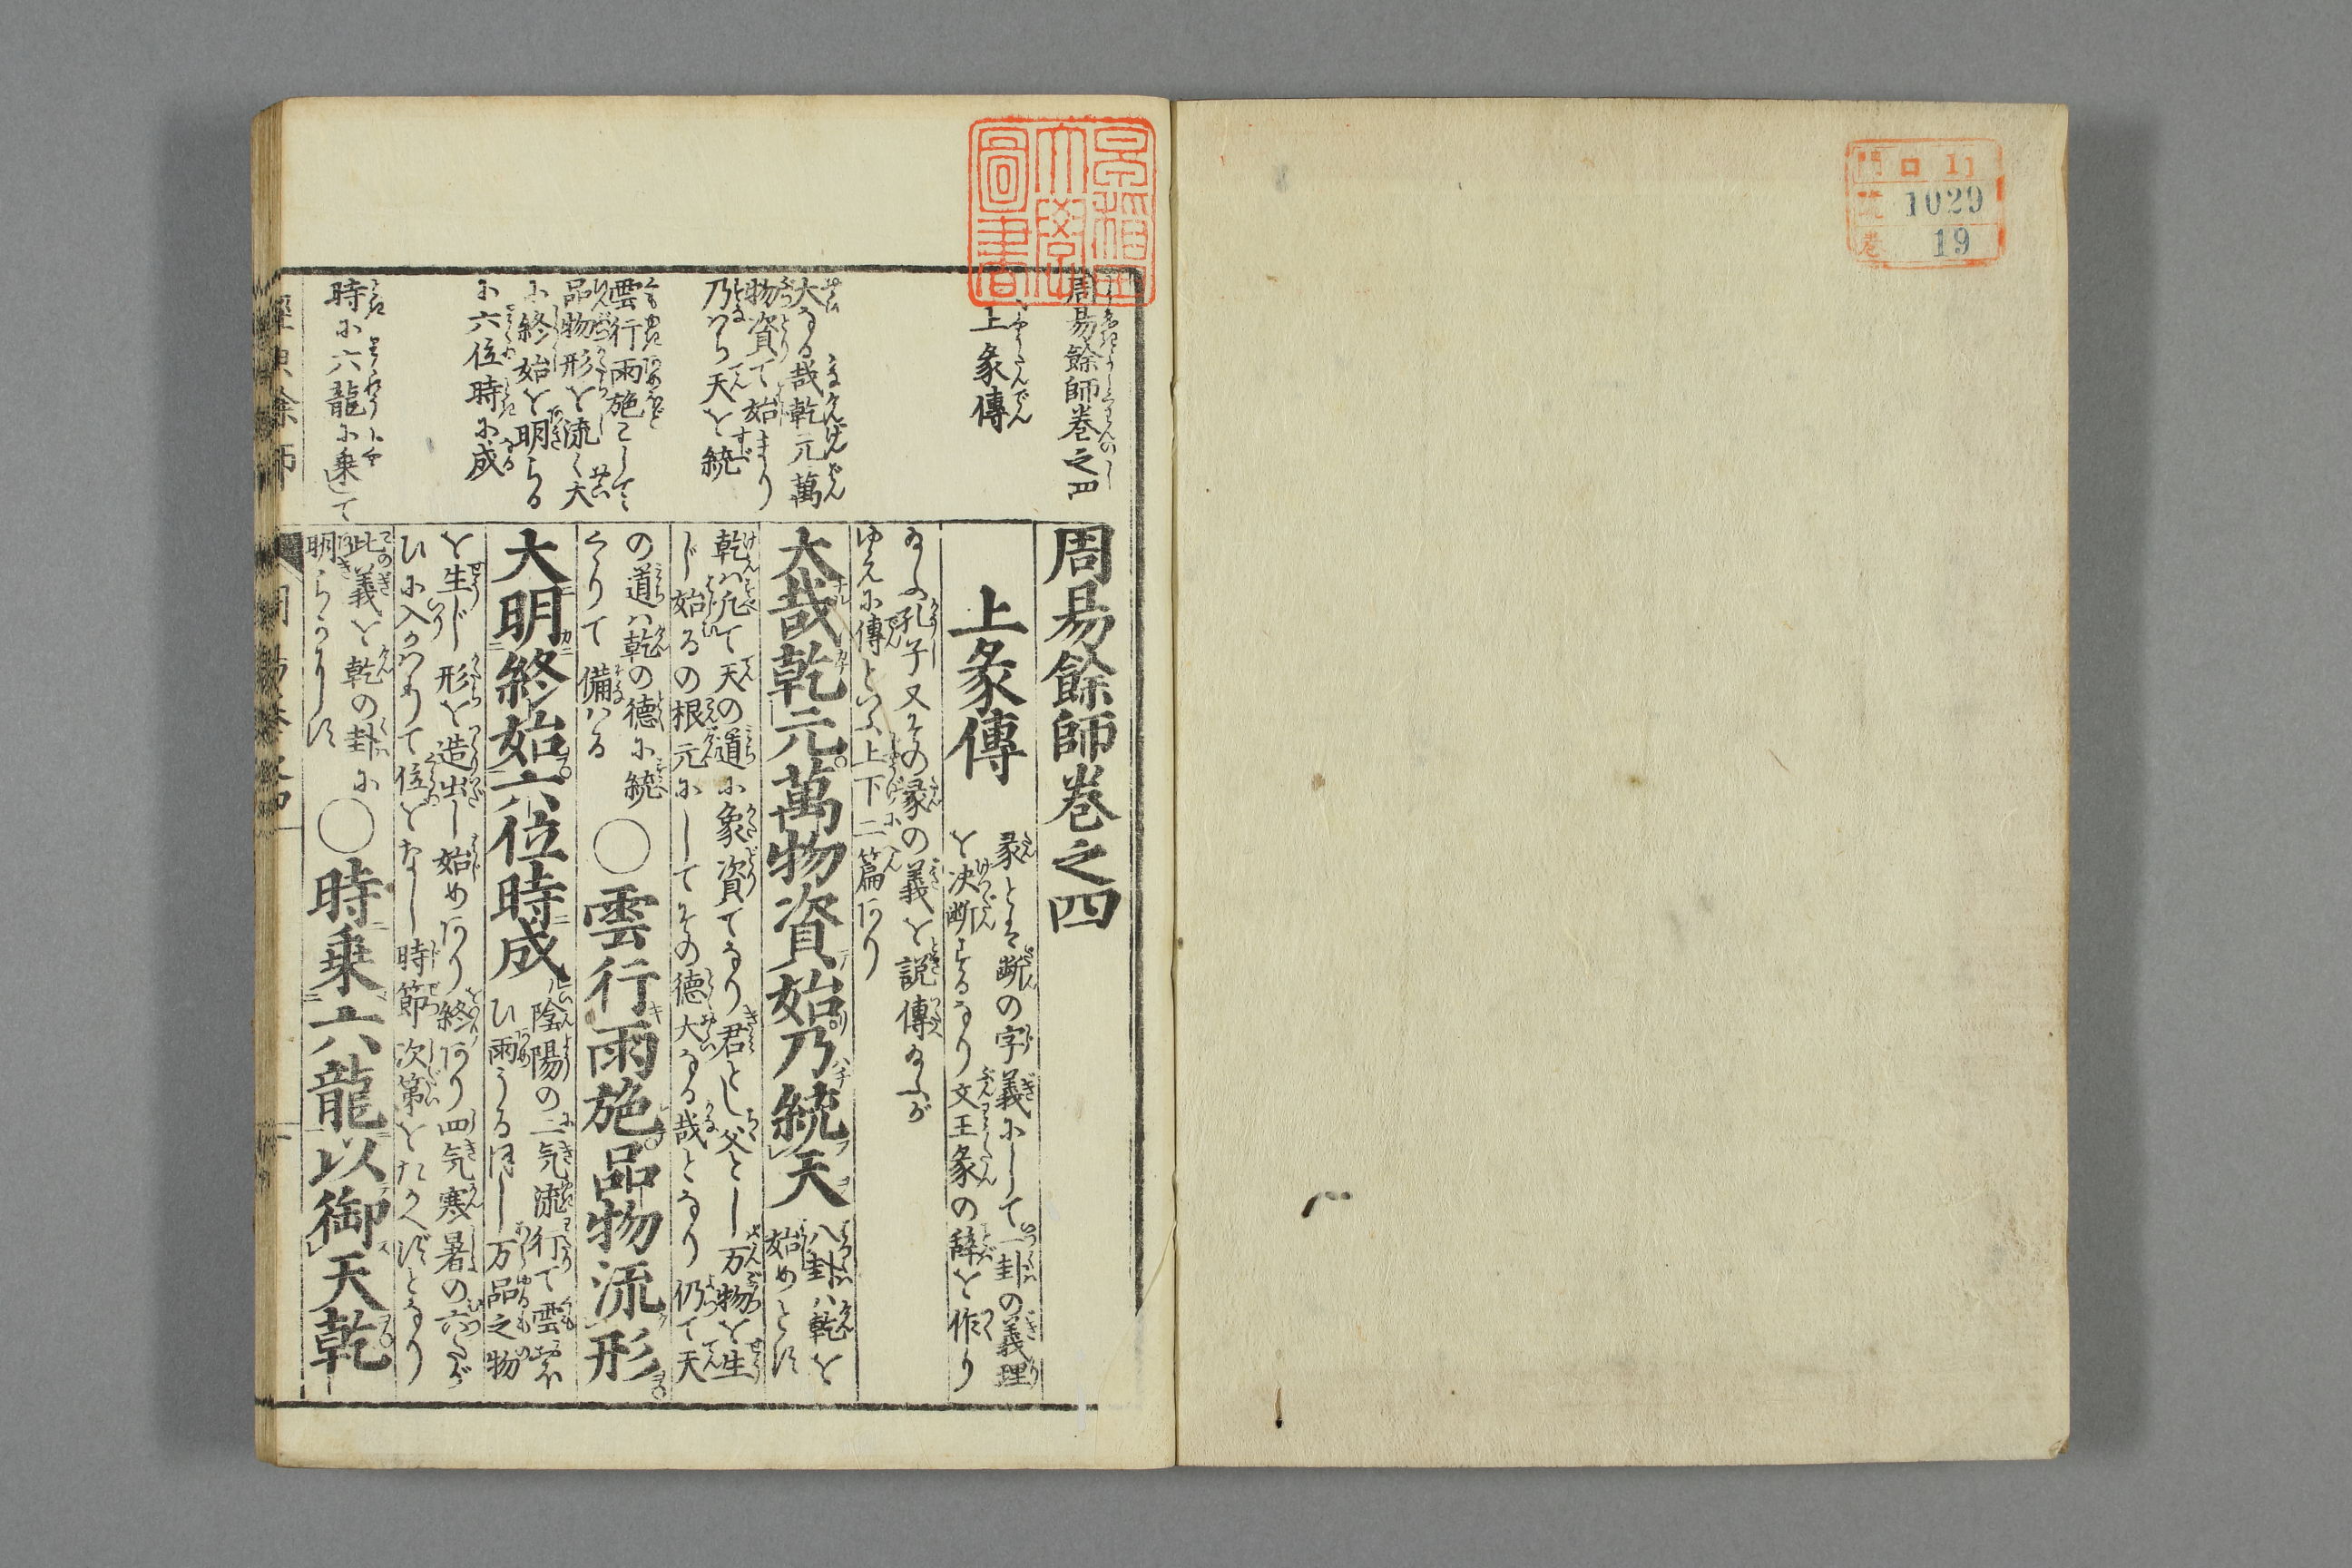 門 ロ 11
號 1029
巻 19
早稲田
大學
圖書
周易餘師巻之四
上彖傳
大なる哉乾元萬
物資て始まり
乃はち天を統
雲行雨施こして
品物形を流く大
に終始を明らる
に六位時に成
時に六龍に乗じて
周易餘師巻之四
上彖傳
彖とは断の字義にして一卦の義理
を决断するなり文王彖の辞を作り
なふ孔子又その彖の義を説傳なふが
ゆえに傳といふ上下二篇あり
大哉乾元萬物資始乃統天
八卦ハ乾を
始めとす
乾ハ凡て天の道に象資てなり君とし父とし万物を生
じ始るの根元にしてその徳大なる哉となり仍て天
の道ハ乾の徳に統
くゝりて備はる
○雲行雨施品物流形
大明終始六位時成
陰陽の二気流行て雲
ひ雨うるほし万品之物
を生じ形を造出し始めあり終あり四気寒暑の六
ひに入かはりて位をなし時節次第をたがへずとなり
此義を乾の卦に
明らかにす
○時乗六龍以御天乾